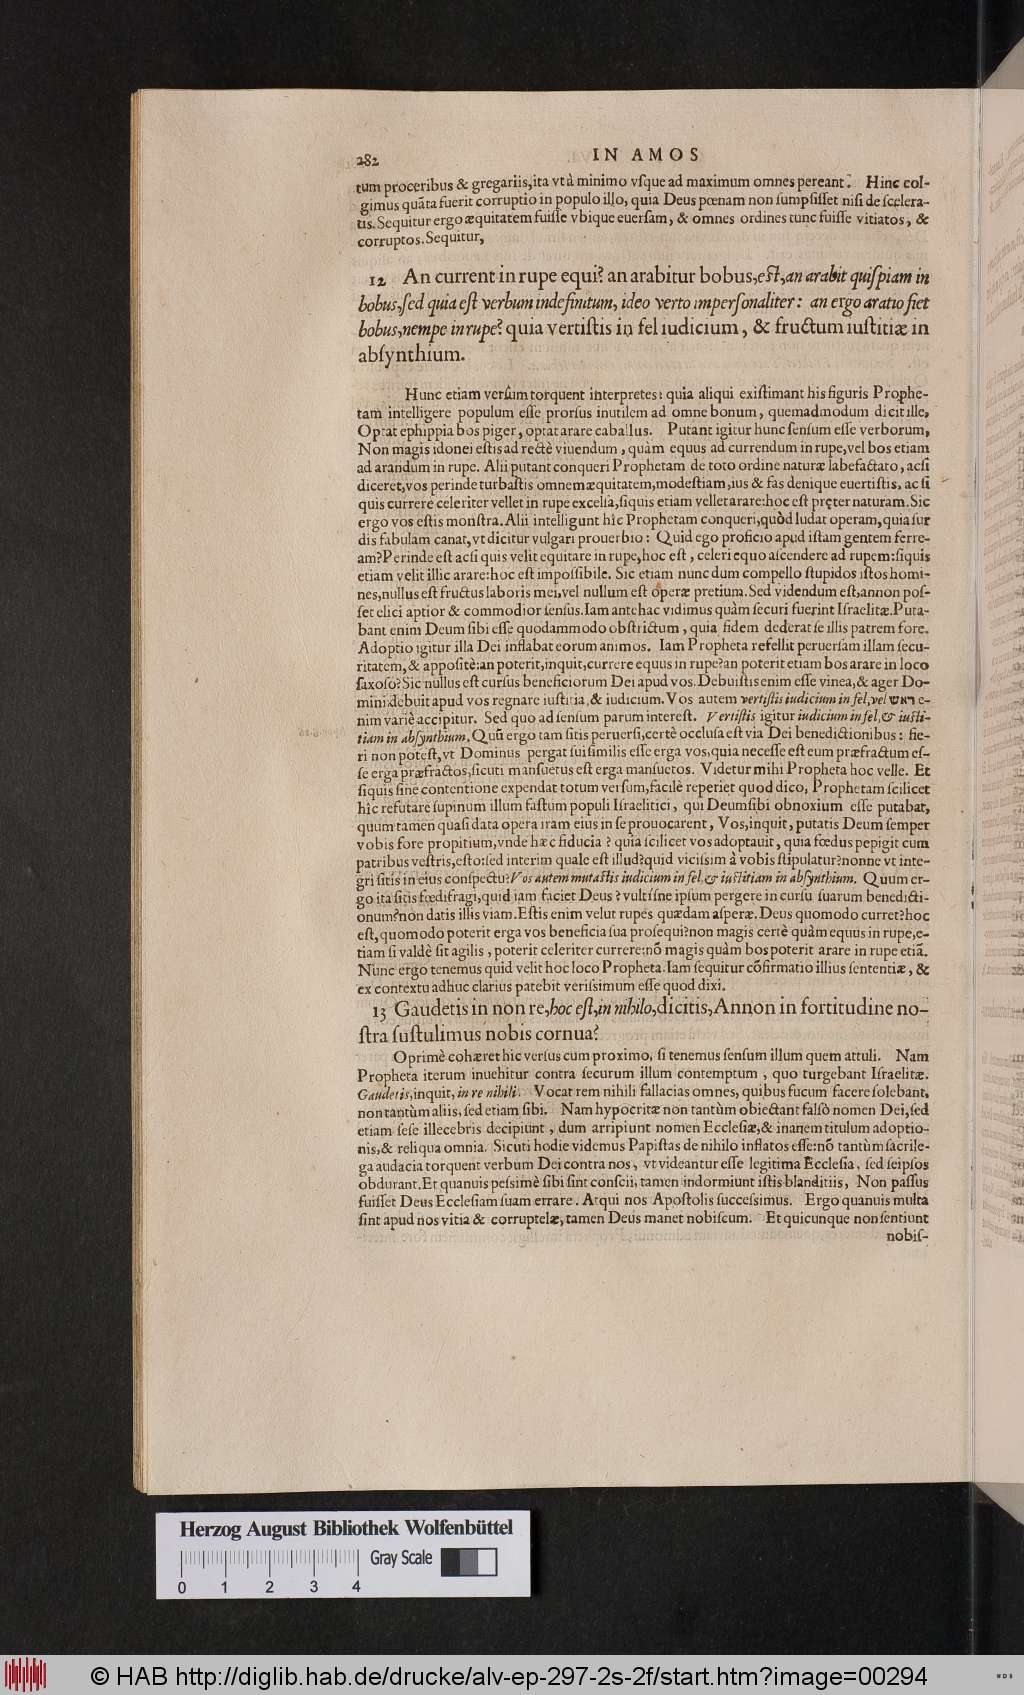 282
IN AMOS
tum proceribus & gregariis, ita vt à minimo vſque ad maximum omnes pereant. Hinc col-
gimus quãta fuerit corruptio in populo illo, quia Deus pœnam non ſumpſiſſet niſi de ſcelera-
tis. Sequitur ergo æquitatem fuiſſe vbique euerſam, & omnes ordines tunc fuiſſe vitiatos, &
corruptos. Sequitur,
12 An current in rupe equi? an arabitur bobus, eſt, an arabit quiſpiam in
bobus, ſed quia eſt verbum indefinitum, ideo verto imperſonaliter: an ergo aratio fiet
bobus, nempe in rupe? quia vertiſtis in fel iudicium, & fructum iuſtitiæ in
abſynthium.
Hunc etiam verſum torquent interpretes: quia aliqui exiſtimant his figuris Prophe-
tam intelligere populum eſſe prorſus inutilem ad omne bonum, quemadmodum dicit ille,
Optat ephippia bos piger, optat arare caballus. Putant igitur hunc ſenſum eſſe verborum,
Non magis idonei eſtis ad rectè viuendum, quàm equus ad currendum in rupe, vel bos etiam
ad arandum in rupe. Alii putant conqueri Prophetam de toto ordine naturæ labefactato, acſi
diceret, vos perinde turbaſtis omnem æquitatem, modeſtiam, ius & fas denique euertiſtis, ac ſi
quis currere celeriter vellet in rupe excelſa, ſiquis etiam vellet arare: hoc eſt pręter naturam. Sic
ergo vos eſtis monſtra. Alii intelligunt hîc Prophetam conqueri, quòd ludat operam, quia ſur
dis fabulam canat, vt dicitur vulgari prouerbio: Quid ego proficio apud iſtam gentem ferre-
am? Perinde eſt acſi quis velit equitare in rupe, hoc eſt, celeri equo aſcendere ad rupem: ſiquis
etiam velit illic arare: hoc eſt impoſſibile. Sic etiam nunc dum compello ſtupidos iſtos homi-
nes, nullus eſt fructus laboris mei, vel nullum eſt operæ pretium. Sed videndum eſt, annon poſ-
ſet elici aptior & commodior ſenſus. Iam antehac vidimus quàm ſecuri fuerint Iſraelitæ. Puta-
bant enim Deum ſibi eſſe quodammodo obſtrictum, quia fidem dederat ſe illis patrem fore.
Adoptio igitur illa Dei inflabat eorum animos. Iam Propheta refellit peruerſam illam ſecu-
ritatem, & appoſitè: an poterit, inquit, currere equus in rupe? an poterit etiam bos arare in loco
ſaxoſo? Sic nullus eſt curſus beneficiorum Dei apud vos. Debuiſtis enim eſſe vinea, & ager Do-
mini: debuit apud vos regnare iuſtitia, & iudicium. Vos autem vertiſtis iudicium in fel, vel ראש e-
nim variè accipitur. Sed quo ad ſenſum parum intereſt. Vertiſtis igitur iudicium in fel, & iuſti-
tiam in abſynthium. Quũ ergo tam ſitis peruerſi, certè occluſa eſt via Dei benedictionibus: fie-
ri non poteſt, vt Dominus pergat ſui ſimilis eſſe erga vos, quia neceſſe eſt eum præfractum eſ-
ſe erga præfractos, ſicuti manſuetus eſt erga manſuetos. Videtur mihi Propheta hoc velle. Et
ſiquis ſine contentione expendat totum verſum, facilè reperiet quod dico, Prophetam ſcilicet
hîc refutare ſupinum illum faſtum populi Iſraelitici, qui Deum ſibi obnoxium eſſe putabat,
quum tamen quaſi data opera iram eius in ſe prouocarent, Vos, inquit, putatis Deum ſemper
vobis fore propitium, vnde hæc fiducia? quia ſcilicet vos adoptauit, quia fœdus pepigit cum
patribus veſtris, eſto: ſed interim quale eſt illud? quid viciſſim à vobis ſtipulatur? nonne vt inte-
gri ſitis in eius conſpectu? Vos autem mutaſtis iudicium in fel, & iuſtitiam in abſynthium. Quum er-
go ita ſitis fœdifragi, quid iam faciet Deus? vultiſne ipſum pergere in curſu ſuarum benedicti-
onum? non datis illis viam. Eſtis enim velut rupes quædam aſperæ. Deus quomodo curret? hoc
eſt, quomodo poterit erga vos beneficia ſua proſequi? non magis certè quàm equus in rupe, e-
tiam ſi valdè ſit agilis, poterit celeriter currere: nõ magis quàm bos poterit arare in rupe etiã.
Nunc ergo tenemus quid velit hoc loco Propheta. Iam ſequitur cõfirmatio illius ſententiæ, &
ex contextu adhuc clarius patebit veriſſimum eſſe quod dixi.
13 Gaudetis in non re, hoc eſt, in nihilo, dicitis, Annon in fortitudine no-
ſtra ſuſtulimus nobis cornua?
Optimè cohæret hic verſus cum proximo, ſi tenemus ſenſum illum quem attuli. Nam
Propheta iterum inuehitur contra ſecurum illum contemptum, quo turgebant Iſraelitæ.
Gaudetis, inquit, in re nihili. Vocat rem nihili fallacias omnes, quibus fucum facere ſolebant,
non tantùm aliis, ſed etiam ſibi. Nam hypocritæ non tantùm obiectant falſò nomen Dei, ſed
etiam ſeſe illecebris decipiunt, dum arripiunt nomen Eccleſiæ, & inanem titulum adoptio-
nis, & reliqua omnia. Sicuti hodie videmus Papiſtas de nihilo inflatos eſſe: nõ tantùm ſacrile-
ga audacia torquent verbum Dei contra nos, vt videantur eſſe legitima Eccleſia, ſed ſeipſos
obdurant. Et quanuis peſsimè ſibi ſint conſcii, tamen indormiunt iſtis blanditiis, Non paſſus
fuiſſet Deus Eccleſiam ſuam errare. Atqui nos Apoſtolis ſucceſsimus. Ergo quanuis multa
ſint apud nos vitia & corruptelæ, tamen Deus manet nobiſcum. Et quicunque non ſentiunt
nobiſ-
Herzog August Bibliothek Wolfenbüttel
Gray Scale
0 1 2 3 4
© HAB http://diglib.hab.de/drucke/alv-ep-297-2s-2f/start.htm?image=00294